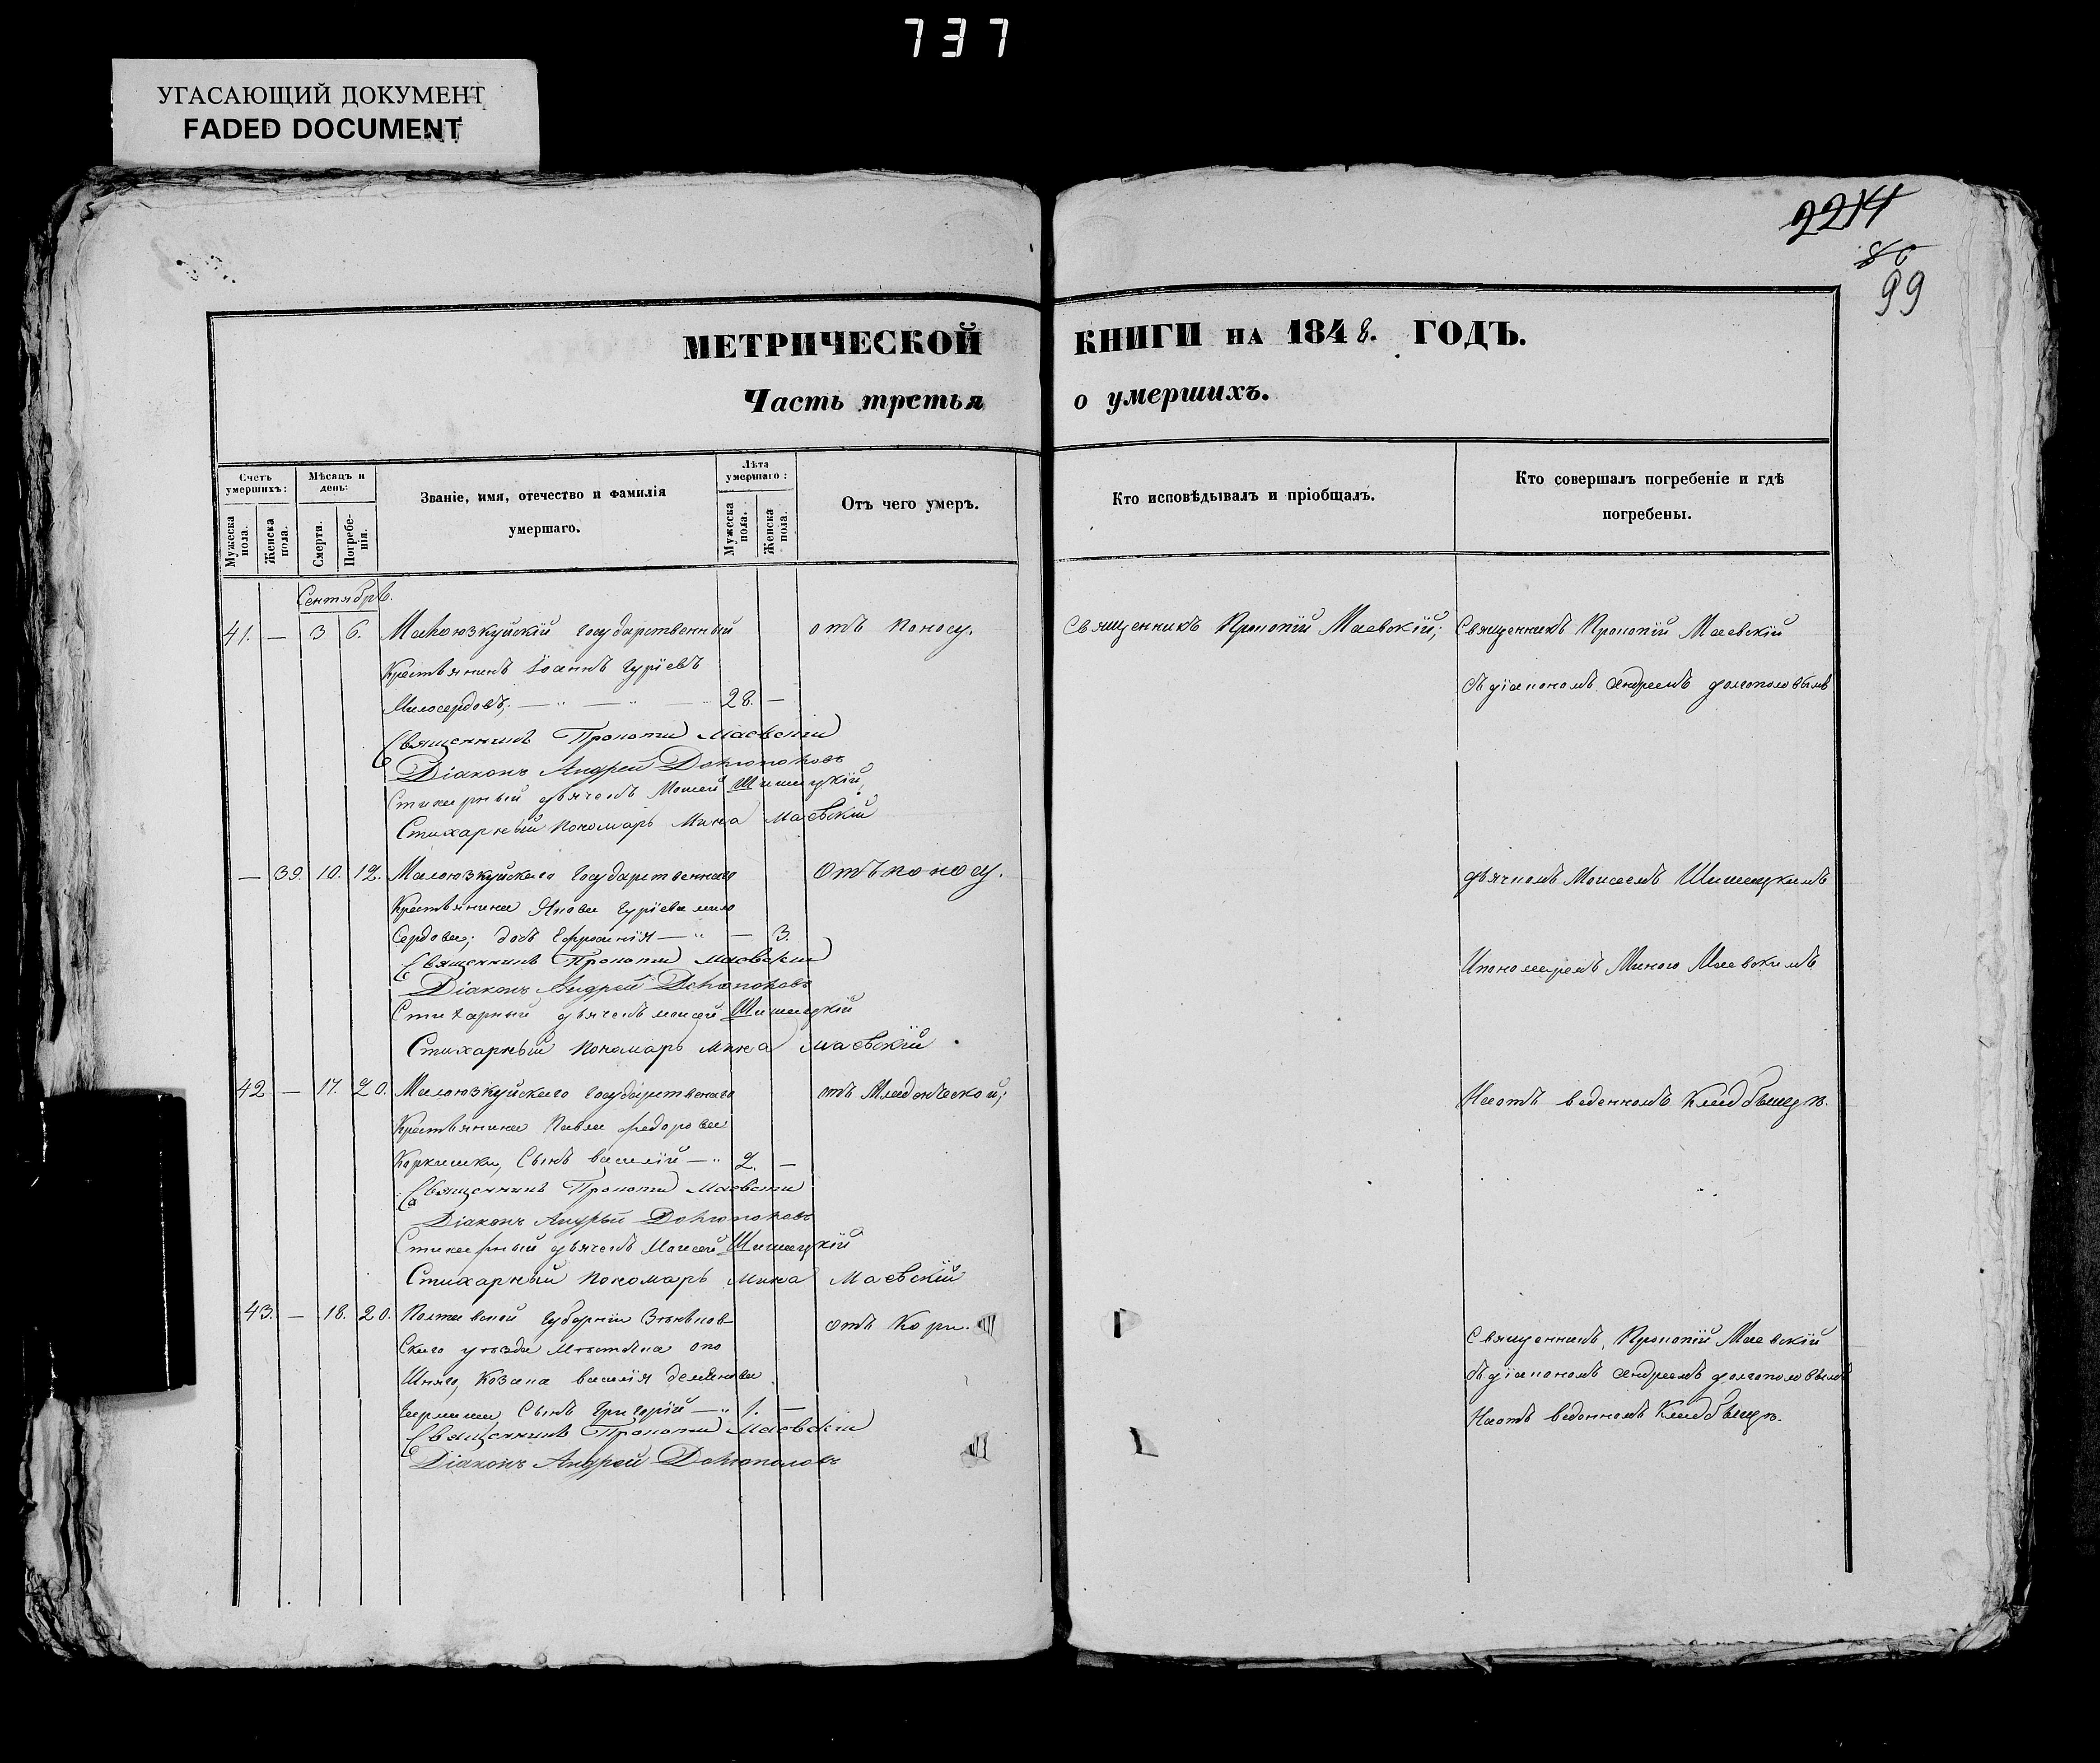 737
УГАСАЮЩИЙ ДОКУМЕНТ
FADED DOCUMENT
2214
86
99
МЕТРИЧЕСКОЙ КНИГИ НА 1848. ГОДЪ.
Часть третья о умершихъ.
Счетъ умершихъ:
Мужеска пола.
Женска пола.
Мѣсяцъ и день:
Смерти.
Погребенія.
Званіе, имя, отечество и фамилія
умершаго.
Лѣта умершаго:
Мужеска пола.
Женска пола.
Отъ чего умеръ.
Кто исповѣдывалъ и пріобщалъ.
Кто совершалъ погребеніе и гдѣ
погребены.
Сентябрь.
41. — 3 6. Малоюзкуйскій государственный отъ поносу. Священникъ Прокопій Маевскій; Священникъ Прокопій Маевскій
Крестьянинъ Іоаннъ Гуріевъ
Милосердовъ; — " — " — " 28. — съ діакономъ Андреемъ Долгополовымъ
Священникъ Прокопій Маевскій
Діаконъ Андрей Долгополовъ
Стихарный дьячекъ Моисей Шишацкій
Стихарный пономарь Мина Маевскій
— 39. 10. 12. Малоюзкуйскаго государственнаго отъ поносу. дьячкомъ Моисеемъ Шишацкимъ
Крестьянина Якова Гуріева мило
Сердова; дочь Ефросинія — " — 3.
Священникъ Прокопій Маевскій Ипономаремъ Миною Маевскимъ
Діаконъ Андрей Долгополовъ
Стихарный дьячекъ Моисей Шишацкій
Стихарный пономарь Мина Маевскій
42 — 17. 20. Малоюзкуйскаго государственаго отъ Младенческой; Наотъ веденномъ Кладбыщѣ.
Крестьянина Павла федорова
Коркишки, Сынъ василій — " 2. —
Священникъ Прокопій Маевскій
Діаконъ Андрей Долгополовъ
Стихарный дьячекъ Моисей Шишацкій
Стихарный пономарь Мина Маевскій
43. — 18. 20. Полтавской губерніи Зѣньков- отъ Кори. Священникъ Прокопій Маевскій
Скаго уѣзда Мѣстѣчка опо
Шняго, Козака василія съ діакономъ Андреемъ Долгополовымъ
Сынъ Григорій — " 1. — Наотъ веденномъ Кладбыщѣ.
Священникъ Прокопій Маевскій
Діаконъ Андрей Долгополовъ